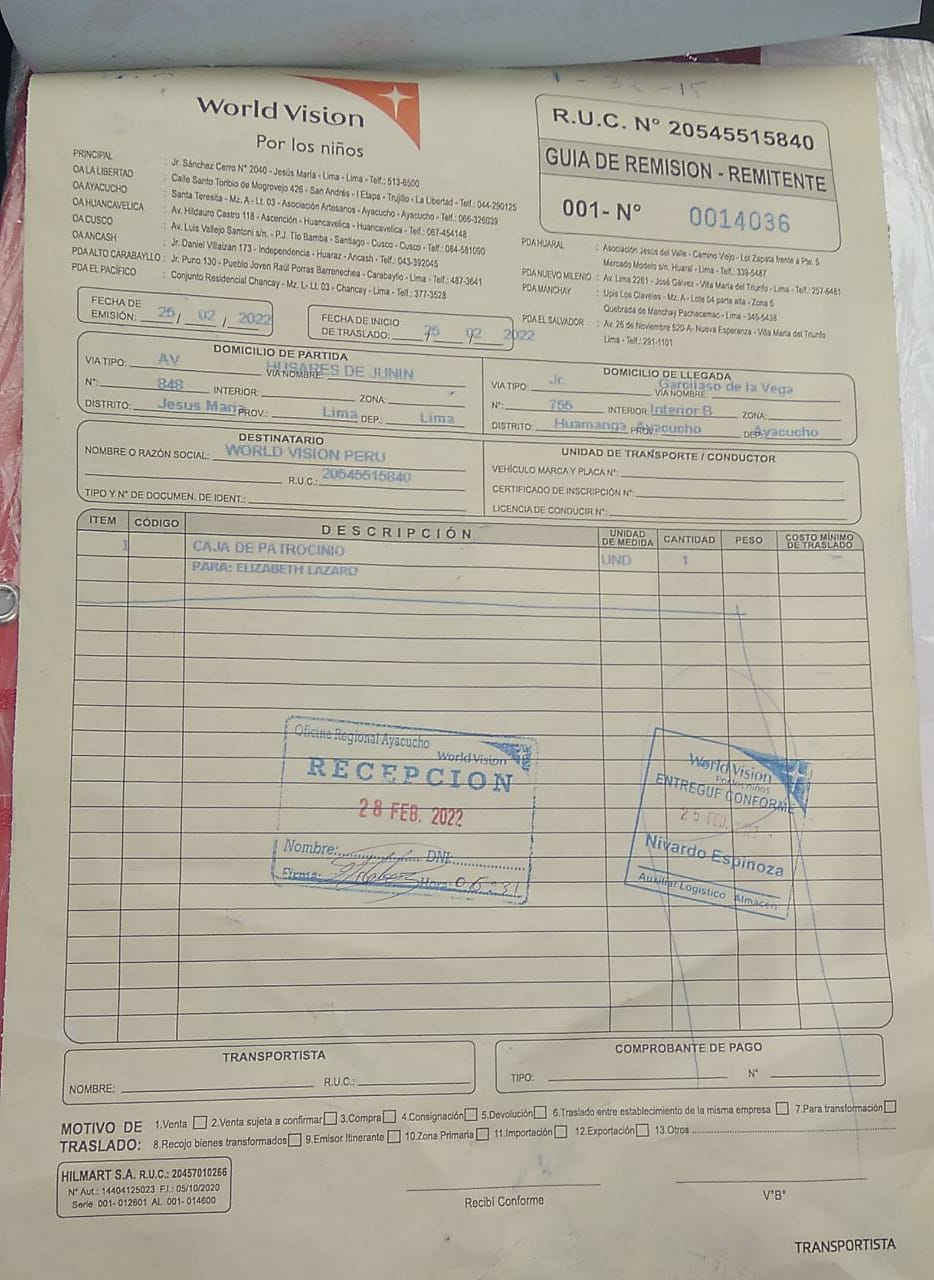 - 32 -15
World Vision
Por los niños
R.U.C. N° 20545515840
GUIA DE REMISION - REMITENTE
001- N° 0014036
PRINCIPAL : Jr. Sánchez Cerro N° 2040 - Jesús María - Lima - Lima - Telf.: 513-6500
OA LA LIBERTAD : Calle Santo Toribio de Mogrovejo 426 - San Andrés - I Etapa - Trujillo - La Libertad - Telf.: 044-290125
OA AYACUCHO : Santa Teresita - Mz. A - Lt. 03 - Asociación Artesanos - Ayacucho - Ayacucho - Telf.: 066-326039
OA HUANCAVELICA : Av. Hildauro Castro 118 - Ascención - Huancavelica - Huancavelica - Telf.: 067-454148
OA CUSCO : Av. Luis Vallejo Santoni s/n. - P.J. Tío Bamba - Santiago - Cusco - Cusco - Telf.: 084-581090
OA ANCASH : Jr. Daniel Villaizan 173 - Independencia - Huaraz - Ancash - Telf.: 043-392045
PDA ALTO CARABAYLLO : Jr. Puno 130 - Pueblo Joven Raúl Porras Barrenechea - Carabayllo - Lima - Telf.: 487-3641
PDA EL PACÍFICO : Conjunto Residencial Chancay - Mz. L- Lt. 03 - Chancay - Lima - Telf.: 377-3528
PDA HUARAL : Asociación Jesús del Valle - Camino Viejo - Lot Zapata frente a Pte. 5
Mercado Modelo s/n. Huaral - Lima - Telf.: 339-5487
PDA NUEVO MILENIO : Av. Lima 2261 - José Gálvez - Villa María del Triunfo - Lima - Telf.: 257-6481
PDA MANCHAY : Upis Los Claveles - Mz. A - Lote 04 parte alta - Zona 5
Quebrada de Manchay Pachacamac - Lima - 345-5438
PDA EL SALVADOR : Av. 26 de Noviembre 520-A- Nueva Esperanza - Villa María del Triunfo
Lima - Telf.: 291-1101
FECHA DE EMISIÓN: 25/ 02 / 2022
FECHA DE INICIO DE TRASLADO: 25 02 2022
DOMICILIO DE PARTIDA
VIA TIPO: AV VIA NOMBRE: HUSARES DE JUNIN
N°: 848 INTERIOR: ZONA:
DISTRITO: Jesus Maria PROV.: Lima DEP.: Lima
DOMICILIO DE LLEGADA
VIA TIPO: Jr. VIA NOMBRE: Garcilaso de la Vega
N°: 755 INTERIOR: Interior B ZONA:
DISTRITO: Huamanga PROV.: Ayacucho DEP.: Ayacucho
DESTINATARIO
NOMBRE O RAZÓN SOCIAL: WORLD VISION PERU
R.U.C.: 20545515840
TIPO Y N° DE DOCUMEN. DE IDENT.:
UNIDAD DE TRANSPORTE / CONDUCTOR
VEHÍCULO MARCA Y PLACA N°:
CERTIFICADO DE INSCRIPCIÓN N°:
LICENCIA DE CONDUCIR N°:
ITEM CÓDIGO DESCRIPCIÓN UNIDAD DE MEDIDA CANTIDAD PESO COSTO MÍNIMO DE TRASLADO
1 CAJA DE PATROCINIO UND 1
PARA: ELIZABETH LAZARO
Oficina Regional Ayacucho
World Vision
RECEPCION
28 FEB. 2022
Nombre: DNI:
Firma: Hora: 06:31
World Vision
Por los niños
ENTREGUE CONFORME
25 FEB.
Nivardo Espinoza
Auxiliar Logístico Almacén
TRANSPORTISTA
NOMBRE: R.U.C.:
COMPROBANTE DE PAGO
TIPO: N°
MOTIVO DE TRASLADO: 1.Venta 2.Venta sujeta a confirmar 3.Compra 4.Consignación 5.Devolución 6.Traslado entre establecimiento de la misma empresa 7.Para transformación
8.Recojo bienes transformados 9.Emisor Itinerante 10.Zona Primaria 11.Importación 12.Exportación 13.Otros
HILMART S.A. R.U.C.: 20457010266
N° Aut.: 14404125023 F.I.: 05/10/2020
Serie 001- 012601 AL 001- 014600
Recibí Conforme
V°B°
TRANSPORTISTA